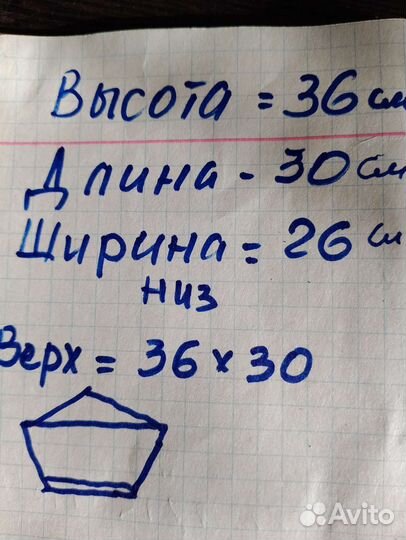 Высота = 36 см
Длина - 30 см
Ширина = 26 см
низ
Верх = 36 x 30
Avito